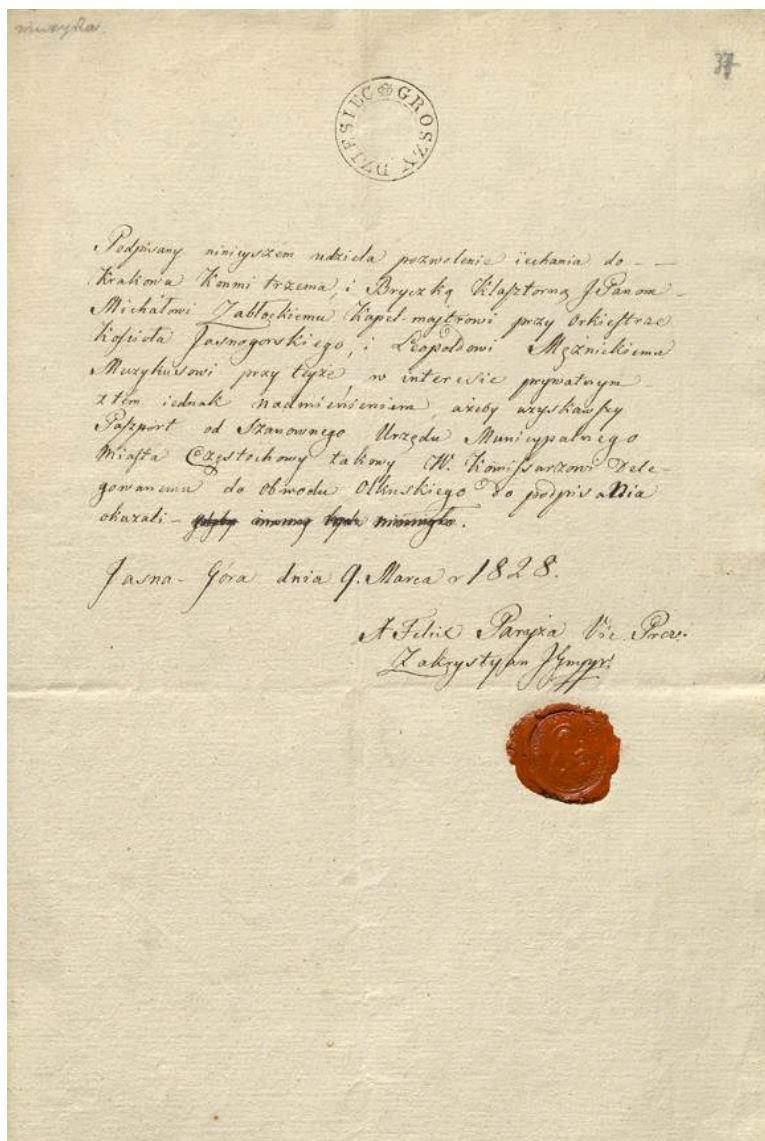 muzyka.
37
DZIESIEC GROSZY
Podpisany ninieyszém udziela pozwolenie iechania do - -
Krakowa Końmi trzema, i Bryczką Klasztorną J. Panom -
Michałowi Zabłockiemu Kapel-majstrowi przy Orkiestrze
Kościoła Jasnogorskiego, i Leopoldowi Mężnickiemu
Muzykusowi przy teyże, w interesie prywatnym -
z tém iednak nadmienieniem, ażeby uzyskawszy
Paszport od Szanownego Urzędu Municypalnego
Miasta Częstochowy takowy W. Kommissarzowi Dele-
gowanemu do obwodu Olkuskiego do podpisania
okazali -
Jasna - Góra dnia 9. Marca r 1828.
X Felix Paryża Vic Prov:
Zakrystyan